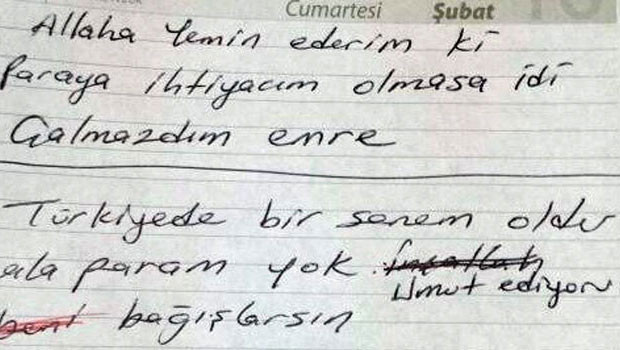 Cumartesi Şubat
Allaha Yemin ederim ki
Paraya ihtiyacım olmasa idi
Çalmazdım emre
Türkiyede bir senem oldu
ala param yok. İnşallah
Umut ediyoru
beni bağışlarsın